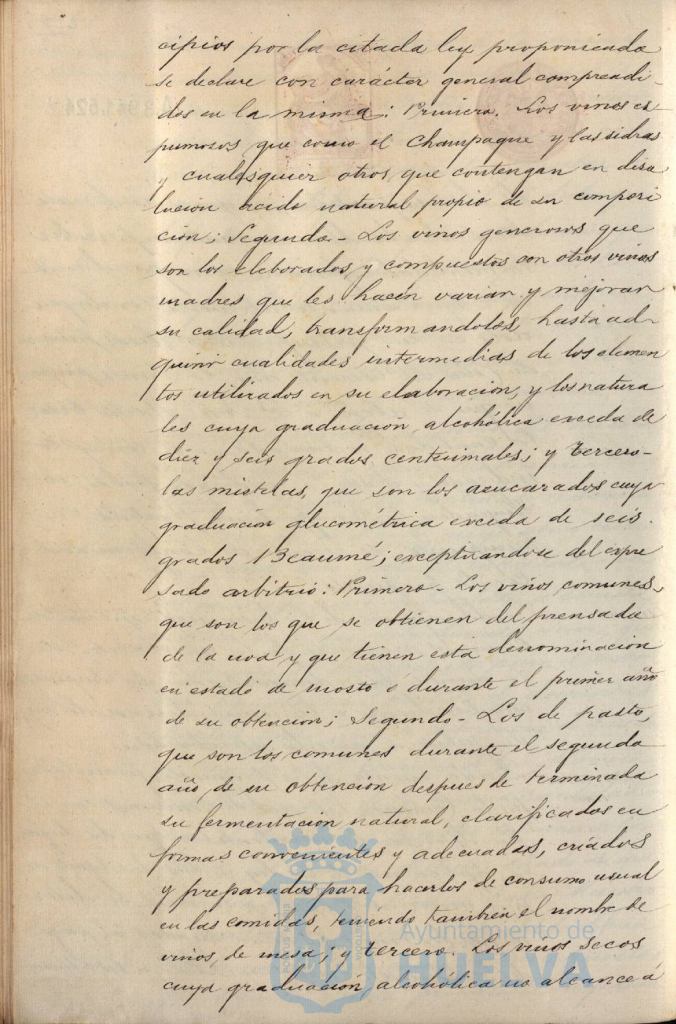 cipios por la citada ley proponiendo
se declare con carácter general comprendi-
dos en la misma: Primero. Los vinos es
pumosos, que como el Champagne y las sidras
y cualesquier otros que contengan en diso
lución ácido natural propio de su composi
ción; Segundo.- Los vinos generosos que
son los elaborados y compuestos con otros vinos
madres que les hacen variar y mejorar
su calidad, transformandoles, hasta ad-
quirir cualidades intermedias de los elemen
tos utilizados en su elaboración, y los natura
les cuya graduación alcohólica exceda de
diez y seis grados centesimales; y tercero-
las mistelas, que son los azucarados cuya
graduación glucométrica exceda de seis
grados Beaumé; exceptuandose del expre
sado arbitrio: Primero- Los vinos comunes,
que son los que se obtienen del prensado
de la uva y que tienen esta denominación
en estado de mosto o durante el primer año
de su obtención; Segundo- Los de pasto,
que son los comunes durante el segundo
año, de su obtención despues de terminada
su fermentación natural, clarificados en
formas convenientes y adecuadas, criados
y preparados para hacerlos de consumo usual
en las comidas, teniendo también el nombre de
vinos, de mesa; y tercero. Los vinos secos
cuya graduación alcohólica no alcance á
Ayuntamiento de
HUELVA